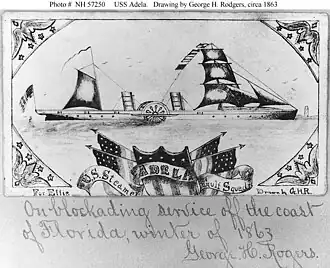 Photo # NH 57250 USS Adela. Drawing by George H. Rodgers, circa 1863
ADELA
U.S. Steamer
For Ellie
Drawn by G.H.R.
On blockading service off the coast
of Florida, winter of 1863
George H. Rogers.